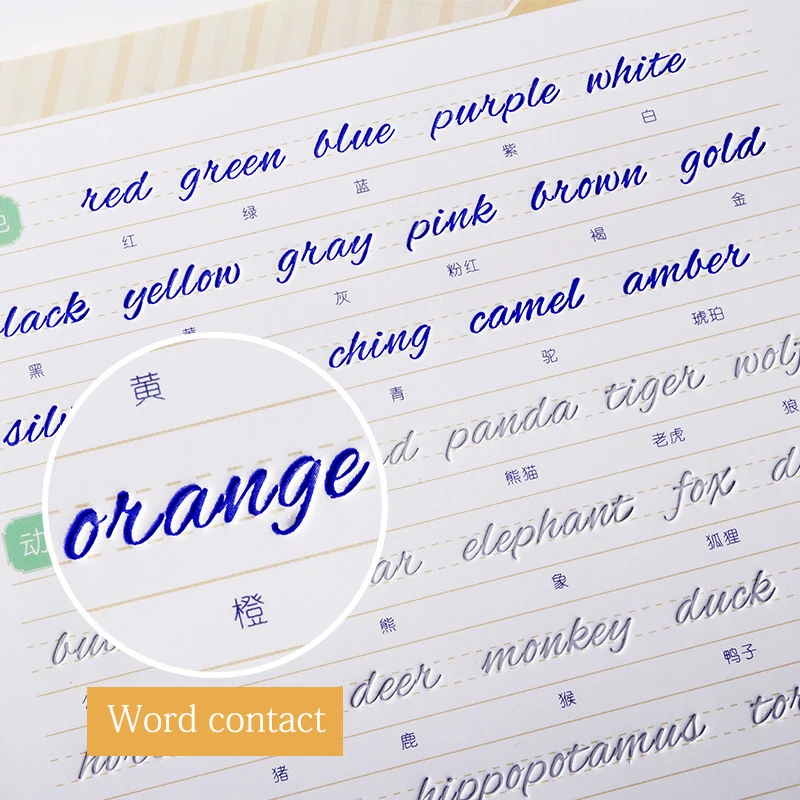 red green blue purple white
红 绿 蓝 紫 白
lack yellow gray pink brown gold
黑 灰 粉红 褐 金
sil ching camel amber
青 驼 琥珀
黄
orange
橙
panda tiger wolf
熊猫 老虎 狼
动
ar elephant fox
熊 象 狐狸
deer monkey duck
鹿 猴 鸭子
hippopotamus
猪
Word contact